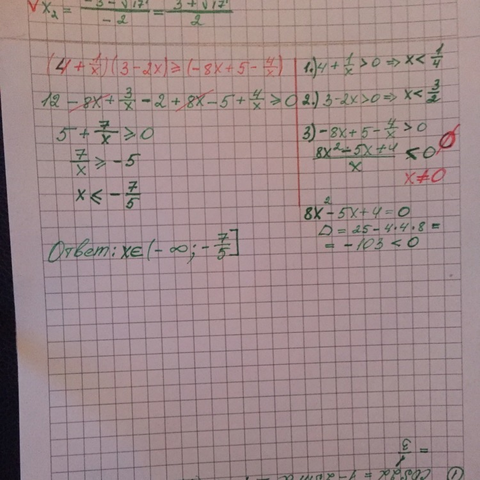 x₂ = (-3-√17)/-2 = (3+√17)/2
(4+1/x)(3-2x) ≥ (-8x+5-4/x)
12-8x+3/x-2+8x-5+4/x ≥ 0
5+7/x ≥ 0
7/x ≥ -5
x ≤ -7/5
Ответ: x∈(-∞; -7/5]
1.) 4+1/x > 0 ⇒ x < 1/4
2.) 3-2x > 0 ⇒ x < 3/2
3) -8x+5-4/x > 0
(8x²-5x+4)/x < 0 ∅
x≠0
8x²-5x+4=0
D = 25-4·4·8 =
= -103 < 0
= 1/3